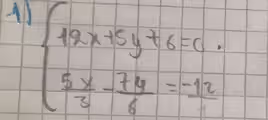 1)
12x+5y+6=0.
5x/3 - 7y/6 = -12